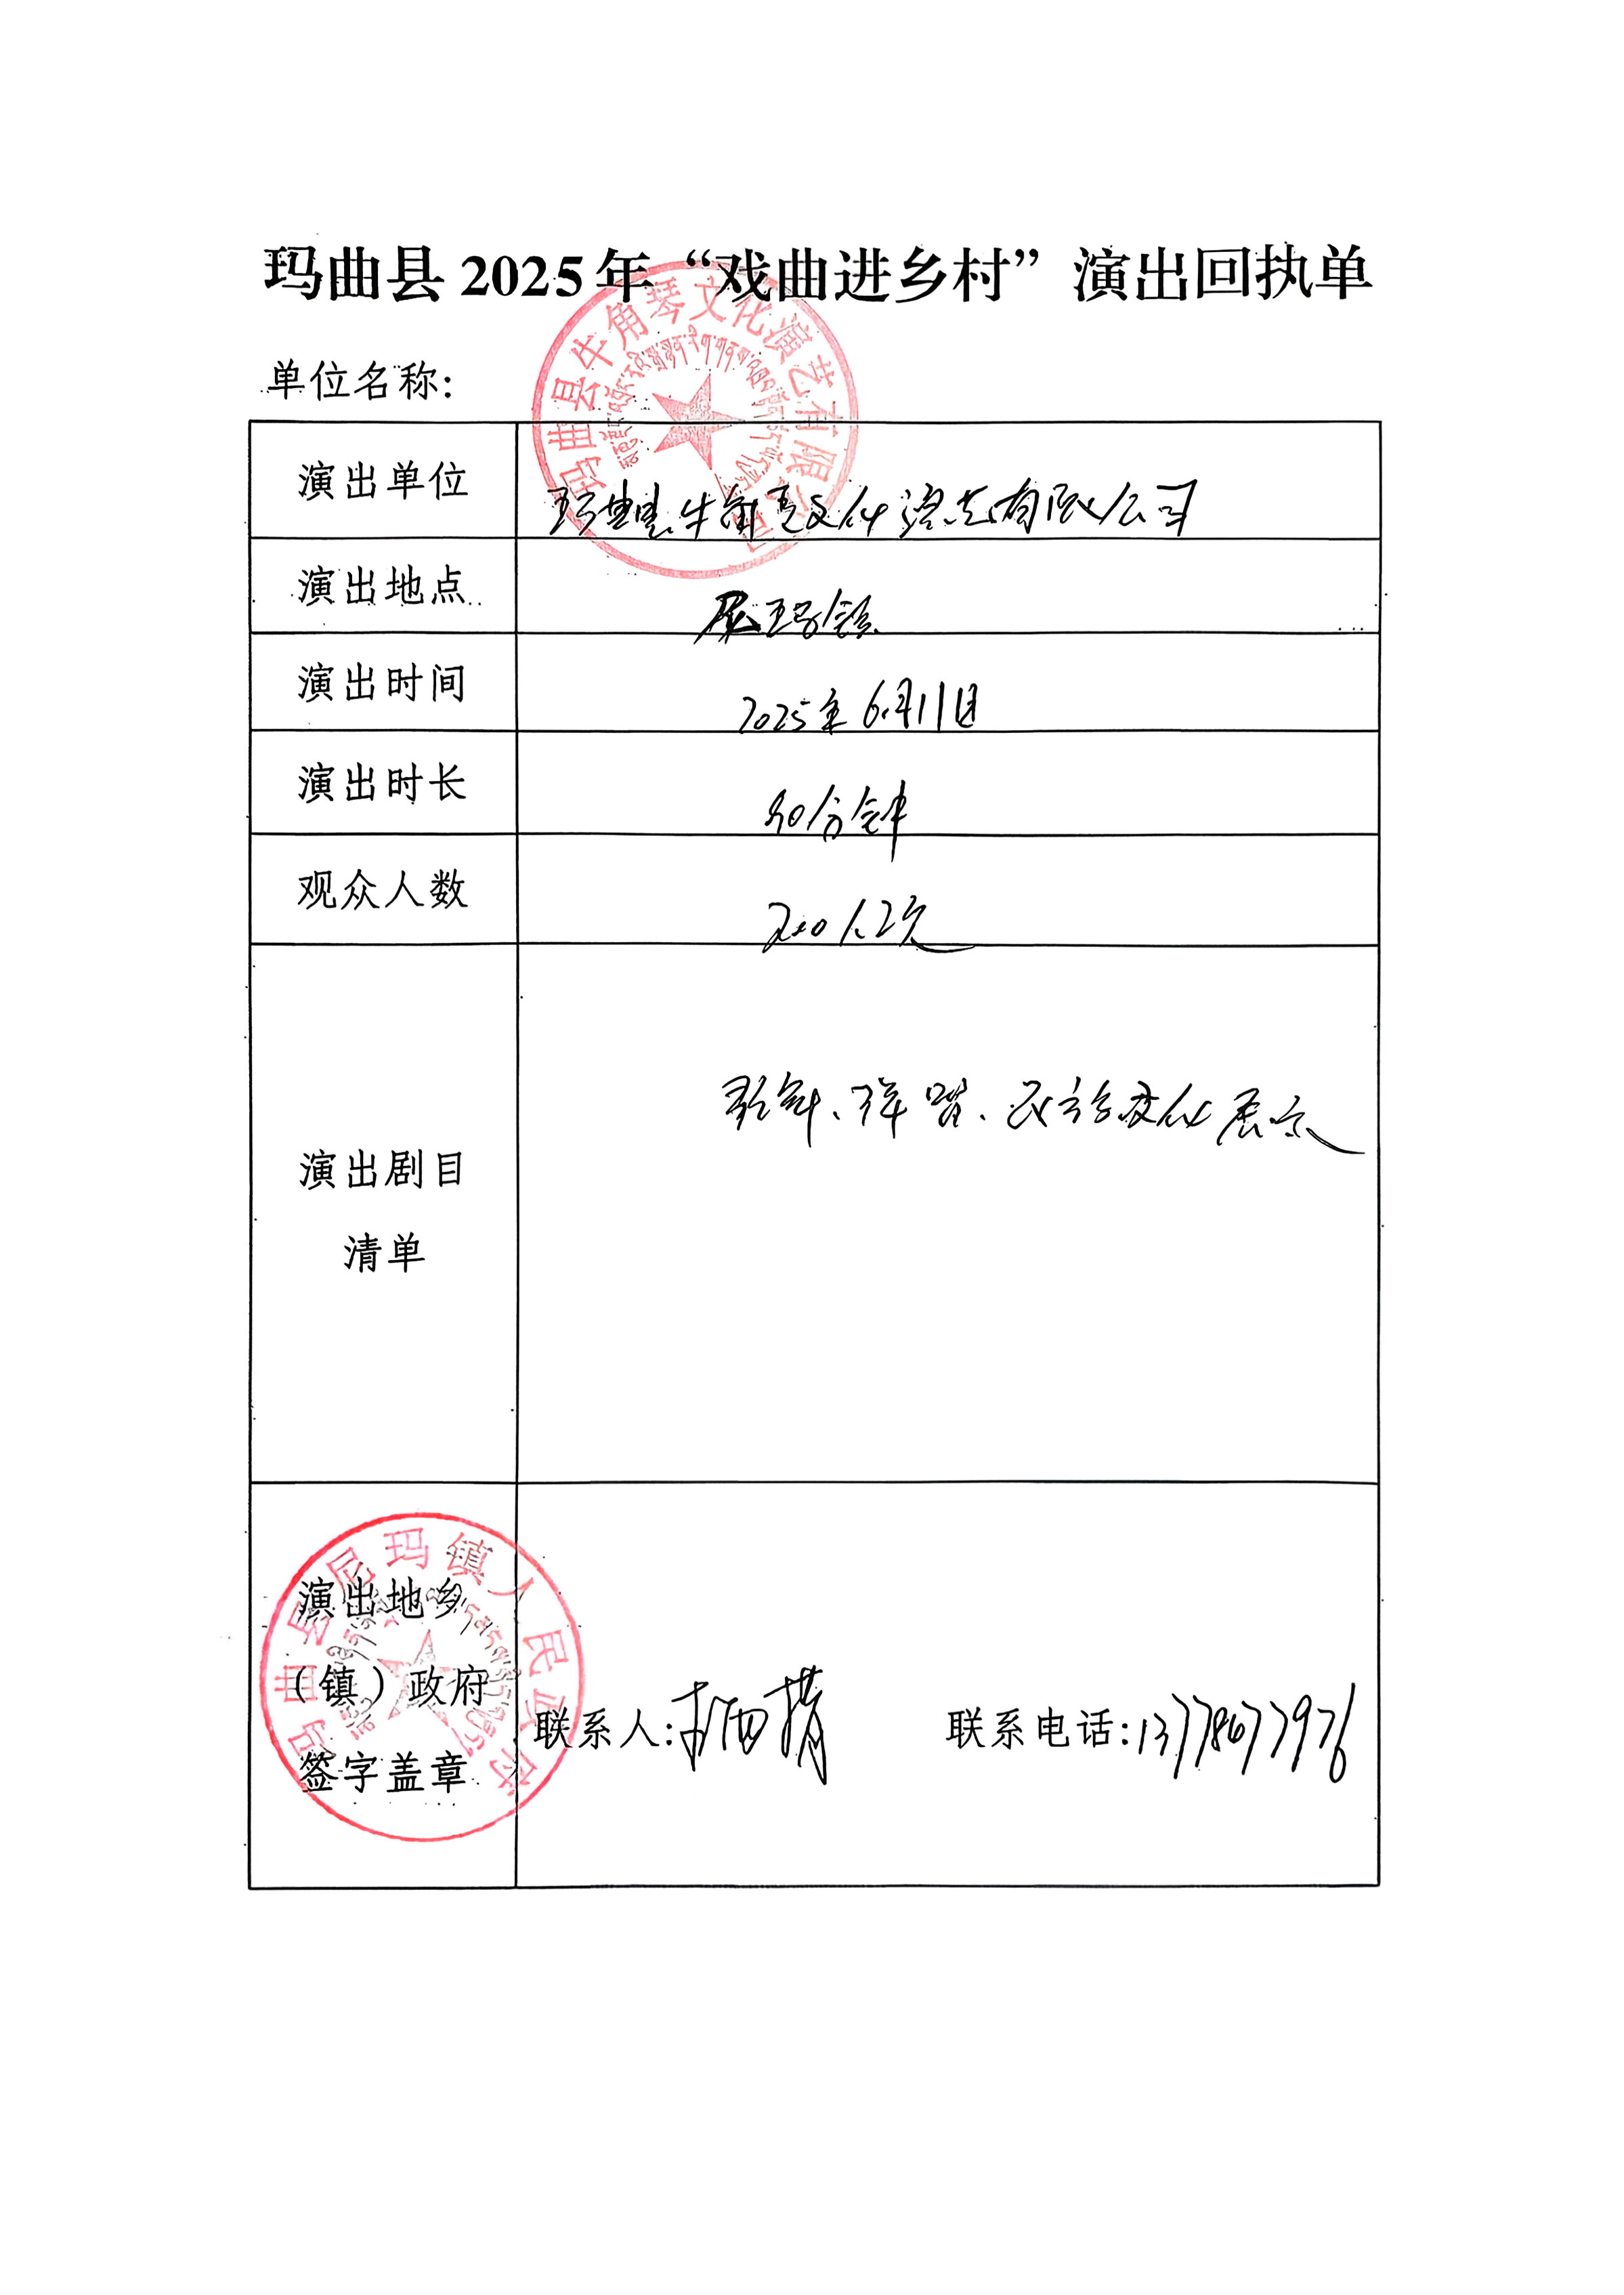 玛曲县2025年“戏曲进乡村”演出回执单
玛曲县牛角琴文化演艺有限公司
单位名称:
演出单位 玛曲县牛角琴文化演艺有限公司
演出地点 尼玛镇
演出时间 2025年6月11日
演出时长 90分钟
观众人数 200人次
演出剧目清单 歌舞、弹唱、民族文化展示
玛曲县尼玛镇人民政府
演出地乡
(镇)政府
签字盖章
联系人: 联系电话: